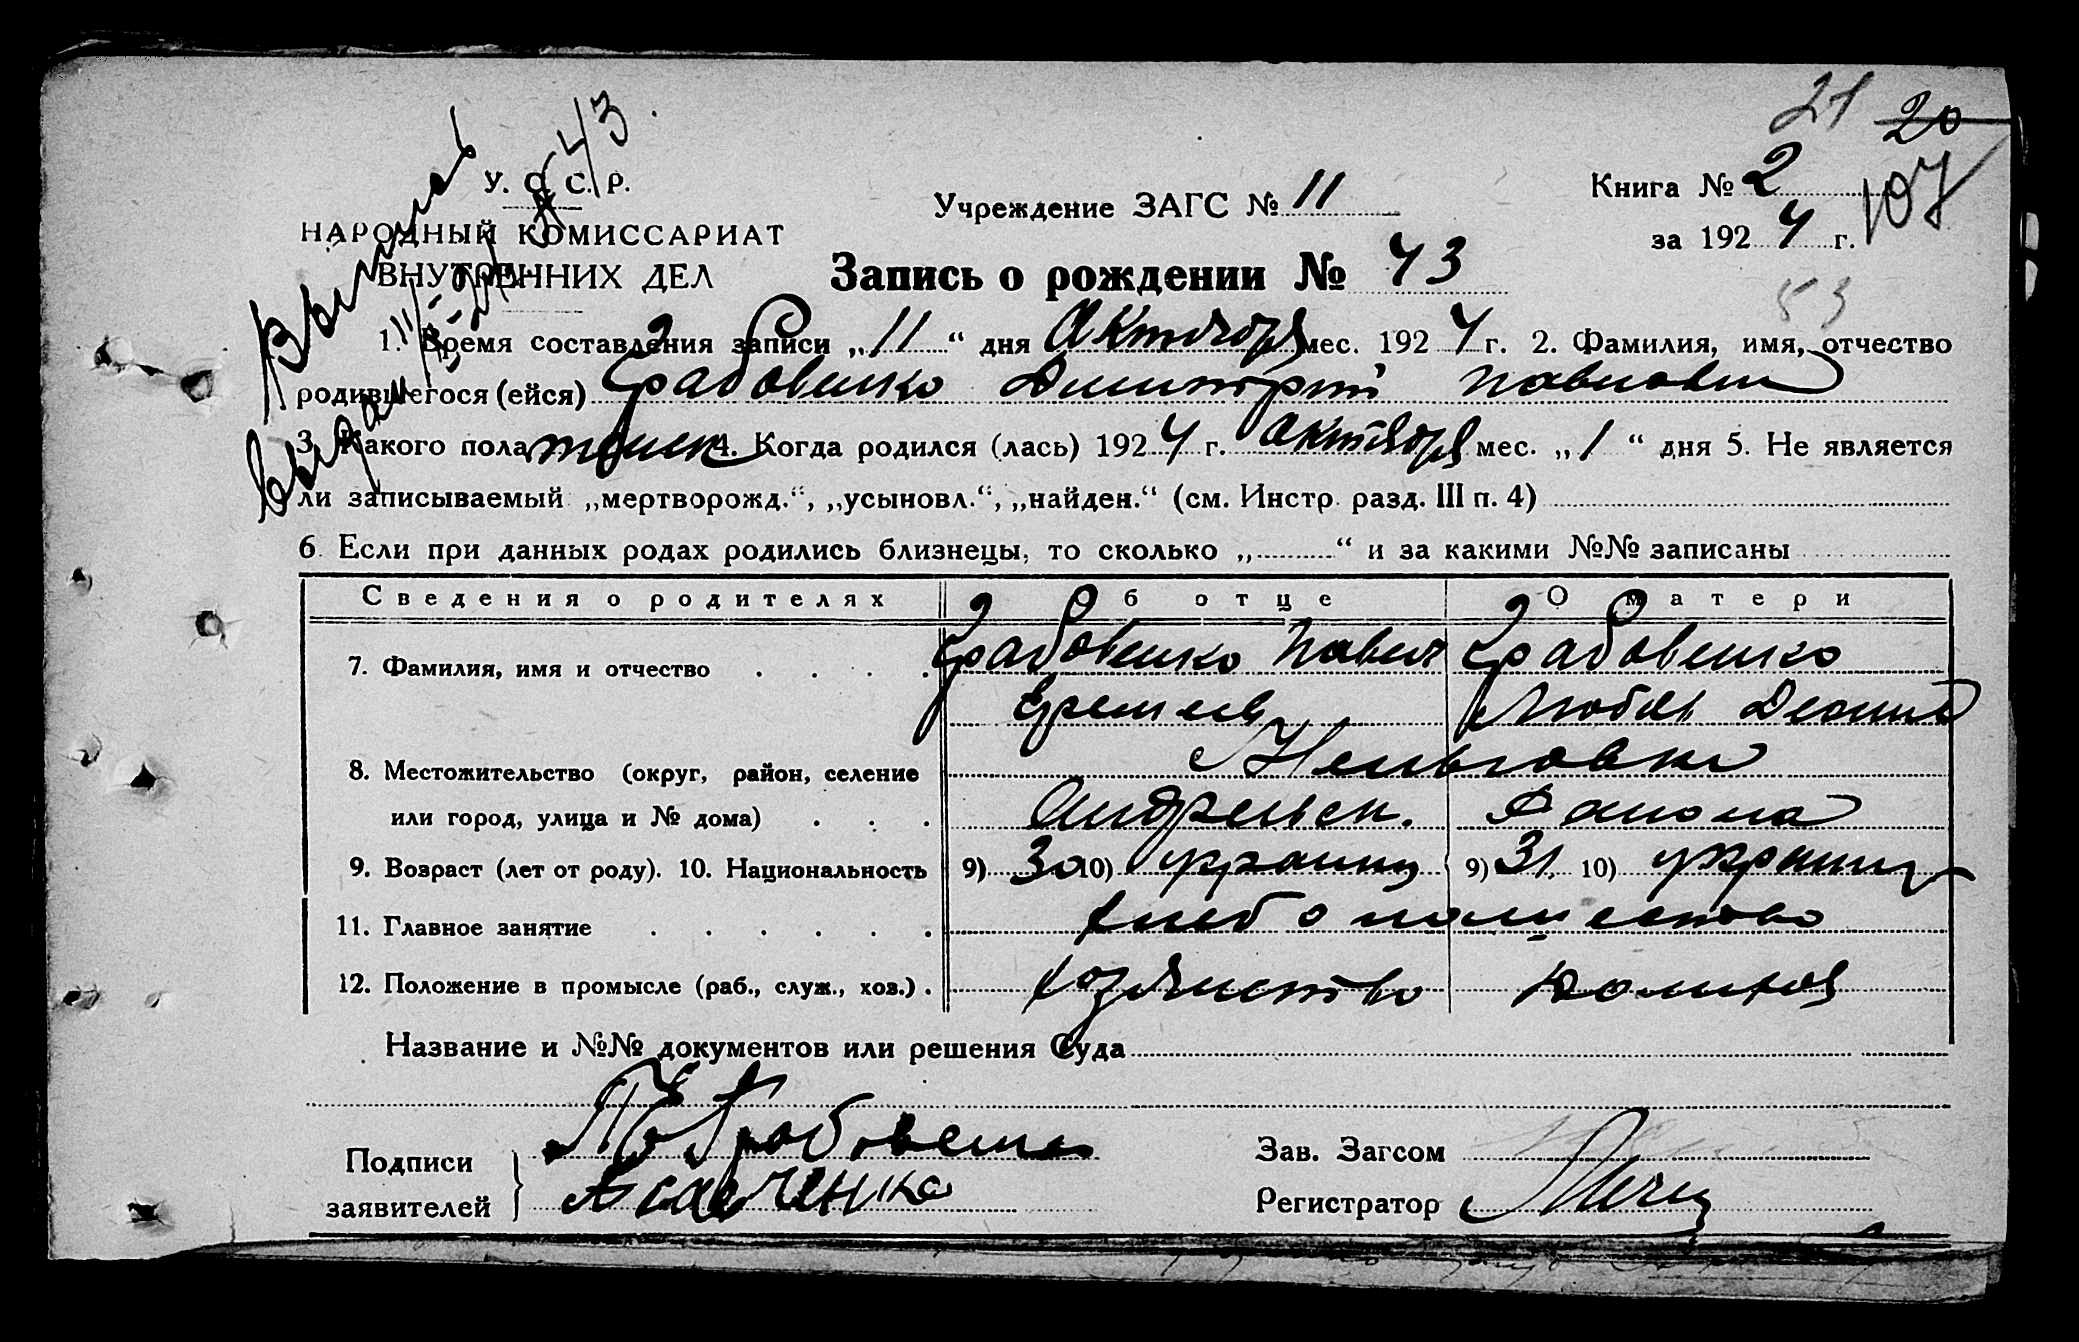 21 20
107
У. С. С. Р.
НАРОДНЫЙ КОМИССАРИАТ
ВНУТРЕННИХ ДЕЛ
Учреждение ЗАГС № 11
Книга № 2
за 192 4 г.
Запись о рождении № 43
53
1. Время составления записи „ 11 “ дня Октября мес. 192 4 г. 2. Фамилия, имя, отчество
родившегося (ейся) Грабовенко Димитрий Павлович
3. Какого пола мужск 4. Когда родился (лась) 192 4 г. Октября мес. „ 1 “ дня 5. Не является
ли записываемый „мертворожд.“, „усыновл.“, „найден.“ (см. Инстр. разд. III п. 4)
6. Если при данных родах родились близнецы, то сколько „ “ и за какими №№ записаны
Сведения о родителях Об отце О матери
7. Фамилия, имя и отчество Грабовенко Павел Грабовенко
Еремеев Любовь
8. Местожительство (округ, район, селение
или город, улица и № дома) Андреевск.
9. Возраст (лет от роду). 10. Национальность 9) 30 10) украинц 9) 31 10) украинц
11. Главное занятие хлебопашество
12. Положение в промысле (раб., служ., хоз.)
Название и №№ документов или решения Суда
Подписи
заявителей
Зав. Загсом
Регистратор